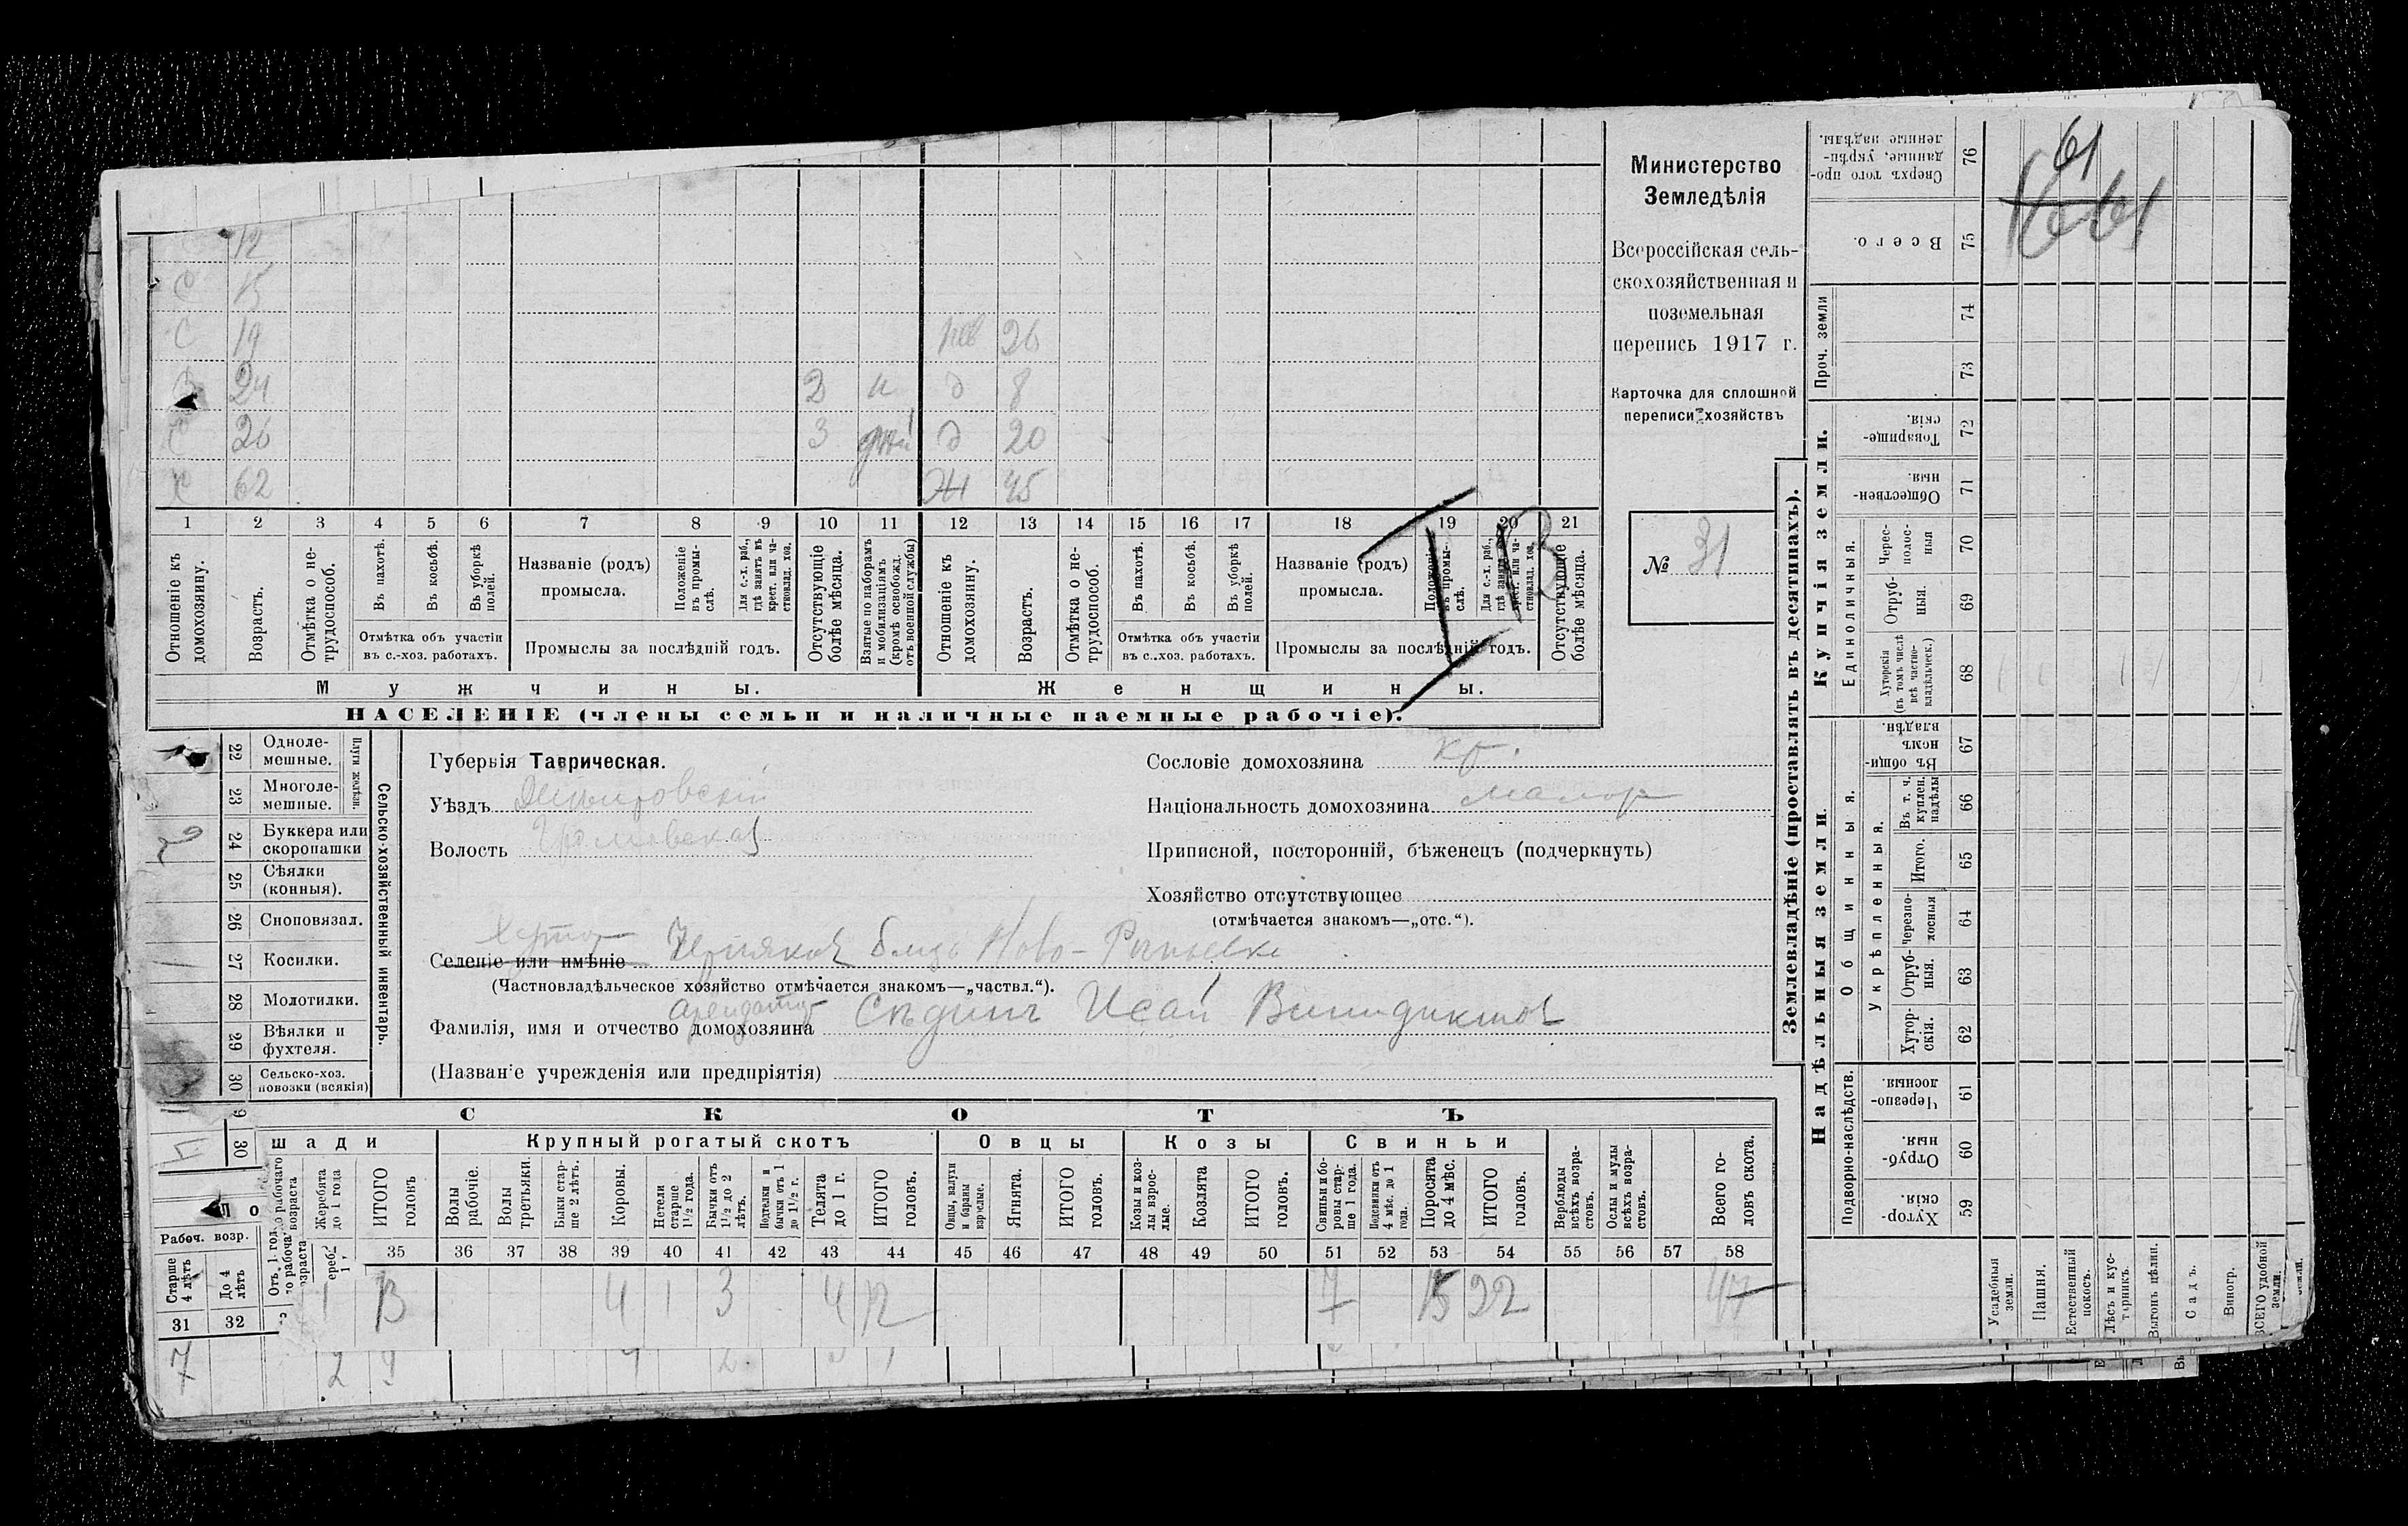 12
С 15
С 19 нев 26
24 3 н д 8
С 26 3 д 20
Х 62 Ж 45
1 2 3 4 5 6 7 8 9 10 11 12 13 14 15 16 17 18 19 20 21
Отношеніе къ домохозяину.
Возрастъ.
Отмѣтка о нетрудоспособ.
Въ пахотѣ.
Въ косьбѣ.
Въ уборкѣ полей.
Отмѣтка объ участіи
въ с.-хоз. работахъ.
Названіе (родъ)
промысла.
Положеніе въ промыслѣ.
Для с.-х. раб., гдѣ занятъ въ крест. или частновлад. хоз.
Промыслы за послѣдній годъ.
Отсутствующіе болѣе мѣсяца.
Взятые по наборамъ и мобилизаціямъ (кромѣ освобожд. отъ военной службы)
Отношеніе къ домохозяину.
Возрастъ.
Отмѣтка о нетрудоспособ.
Въ пахотѣ.
Въ косьбѣ.
Въ уборкѣ полей.
Отмѣтка объ участіи
въ с..хоз. работахъ.
Названіе (родъ)
промысла.
Положеніе въ промыслѣ.
Для с.-х. раб., гдѣ занята въ крест. или частновлад. хоз.
Промыслы за послѣдній годъ.
Отсутствующіе болѣе мѣсяца.
Мужчины.
Женщины.
НАСЕЛЕНІЕ (члены семьи и наличные наемные рабочіе).
Министерство
Земледѣлія
Всероссійская сель-
скохозяйственная и
поземельная
перепись 1917 г.
Карточка для сплошной
переписи хозяйствъ
№ 31
22 Одноле-
мешные.
23 Многоле-
мешные.
Плуги желѣзн.
24 Буккера или
скоропашки
25 Сѣялки
(конныя).
26 Сноповязал.
27 Косилки.
28 Молотилки.
29 Вѣялки и
фухтеля.
30 Сельско-хоз.
повозки (всякія)
Сельско-хозяйственный инвентарь.
Губернія Таврическая.
Уѣздъ Днѣпровскій
Волость Громовская
Сословіе домохозяина кр.
Національность домохозяина малор
Приписной, посторонній, бѣженецъ (подчеркнуть)
Хозяйство отсутствующее
(отмѣчается знакомъ—„отс.“).
Хутор
Селеніе или имѣніе близь Ново-
(Частновладѣльческое хозяйство отмѣчается знакомъ—„частвл.“).
арендатор
Фамилія, имя и отчество домохозяина Сѣдинъ Исай
(Названіе учрежденія или предпріятія)
СКОТЪ
шади
Крупный рогатый скотъ
Овцы
Козы
Свиньи
Жеребята до 1 года
ИТОГО головъ
Волы рабочіе.
Волы третьяки.
Быки старше 2 лѣтъ.
Коровы.
Нетели старше 1½ года.
Бычки отъ 1½ до 2 лѣтъ.
Подтелки и бычки отъ 1 до 1½ г.
Телята до 1 г.
ИТОГО головъ.
Овцы, валухи и бараны взрослые.
Ягнята.
ИТОГО головъ.
Козы и козлы взрослые.
Козлята
ИТОГО головъ.
Свиньи и боровы старше 1 года.
Подсвинки отъ 4 мѣс. до 1 года.
Поросята до 4 мѣс.
ИТОГО головъ.
Верблюды всѣхъ возрастовъ.
Ослы и мулы всѣхъ возрастовъ.
Всего головъ скота.
35 36 37 38 39 40 41 42 43 44 45 46 47 48 49 50 51 52 53 54 55 56 57 58
1 13 4 1 3 4 12 7 15 22 47
Рабоч. возр.
Старше 4 лѣтъ
До 4 лѣтъ
31 32
7 2 9
Землевладѣніе (проставлять въ десятинахъ).
Купчія земли.
Надѣльныя земли.
Сверхъ того проданные, укрѣпленные надѣлы. 76
Всего. 75
Проч. земли 74 73
Товарищескія. 72
Общественныя. 71
Единоличныя.
Чересполосныя 70
Отрубныя. 69
Хуторскія (въ томъ числѣ всѣ частновладѣльческ.) 68
Общинныя.
Въ общинномъ владѣн. 67
Укрѣпленныя.
Въ т. ч. куплен. надѣлы 66
Итого. 65
Черезполосныя 64
Отрубныя. 63
Хуторскія. 62
Подворно-наслѣдств.
Черезполосныя. 61
Отрубныя. 60
Хуторскія. 59
Усадебныя земли.
Пашня.
Естественный покосъ.
Лѣсъ и кустарникъ.
Выгонъ цѣлин.
Садъ.
Виногр.
ВСЕГО удобной земли.
61
61